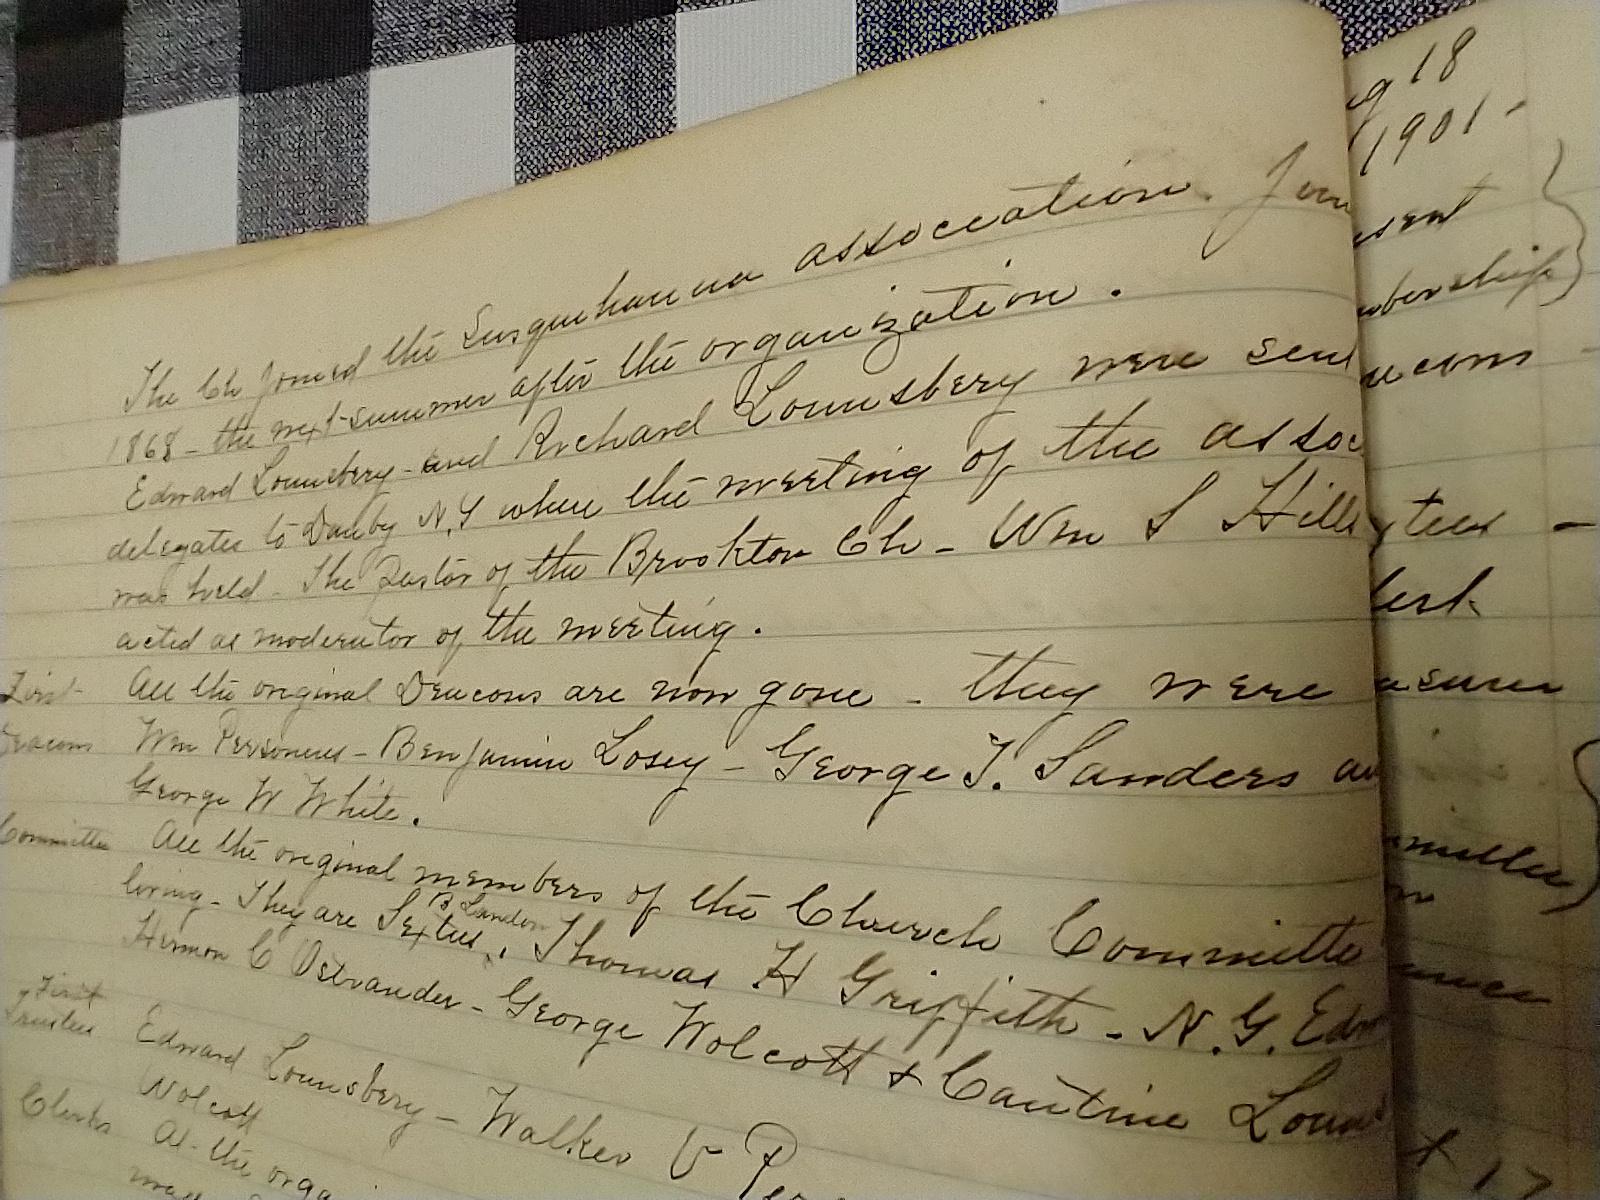 The Ch joined the Susquehanna association. Jun
1868 - the next summer after the organization.
Edward Lounsbery - and Richard Lounsbery were sen
delegates to Danby N.Y where the meeting of the assoc
was held - The Pastor of the Brookton Ch - Wm S Hills
acted as moderator of the meeting.
First All the original Deacons are now gone - they were
Deacons Wm Personeus - Benjamin Losey - George T. Sanders an
George W White.
Committee All the original members of the Church Committe
B Landon
living - They are Sextus, Thomas H Griffith - N.G. Edm
Hermon C Ostrander - George Wolcott & Cantine Louns
First
Trustees Edward Lounsbery - Walker V Per
Wolcott
Clerks At the orga
mad
g 18
1901 -
esent
mbership
eacons -
stees -
lerk
asurer
mmittee